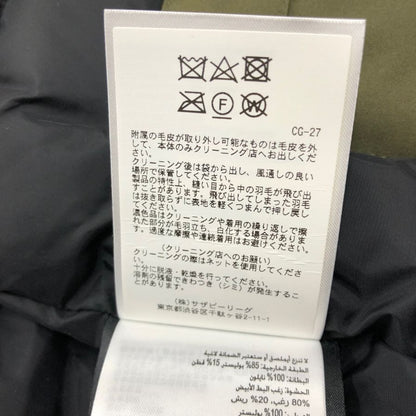 CG-27
附属の毛皮が取り外し可能なものは毛皮を外
して、本体のみクリーニング店へお出しくださ
い。
クリーニング後は袋から出し、風通しの良い
場所で保管してください。
製品の特性上、縫い目から中の羽毛が飛び出
すことがあります。飛び出してしまった羽毛
は抜き取らずに表地を軽くつまんで押し戻し
てください。
濃色品はクリーニングや着用の繰り返しで擦
れた部分が毛羽立ち、白化する場合がありま
す。過度な摩擦や連続着用はお避けください。
(クリーニング店へのお願い)
クリーニングの際はネットを使用してくださ
い。
十分に脱液・乾燥を行ってください。
溶剤の残留できわつき(シミ)が発生するこ
とがあります。
(株)サザビーリーグ
東京都渋谷区千駄ヶ谷2-11-1
لا تنزع أيملصق أو ستعتبر الضمانة لاغية
الطبقة الخارجية: 85% بوليستر 15% قطن
البطانة: 100% نايلون
الحشوة: زغب البط الأبيض
80% زغب، 20% ريش
100% بوليستر